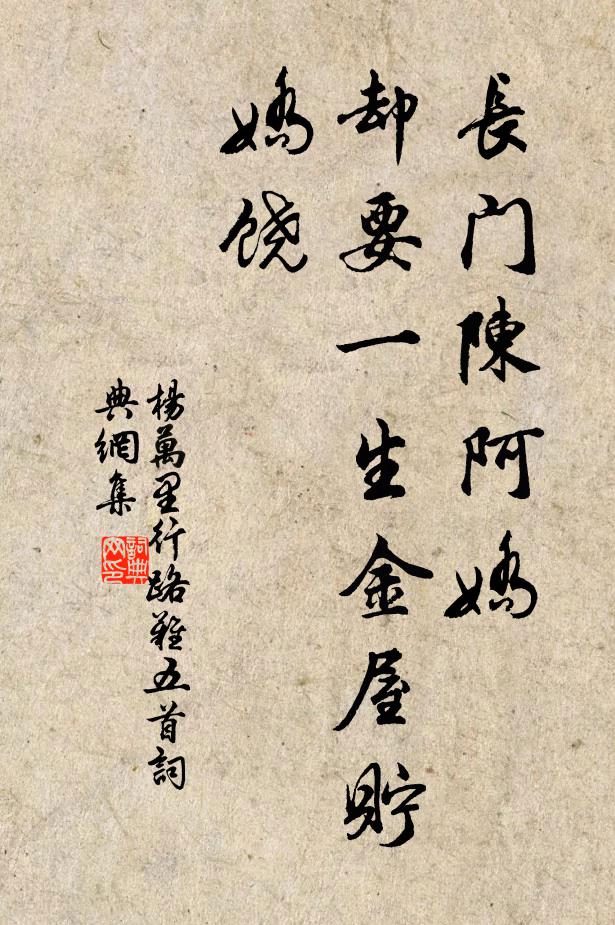 長門陳阿嬌
却要一生金屋貯
嬌饶
楊萬里行路難五首詞
典網集
詞典
网印